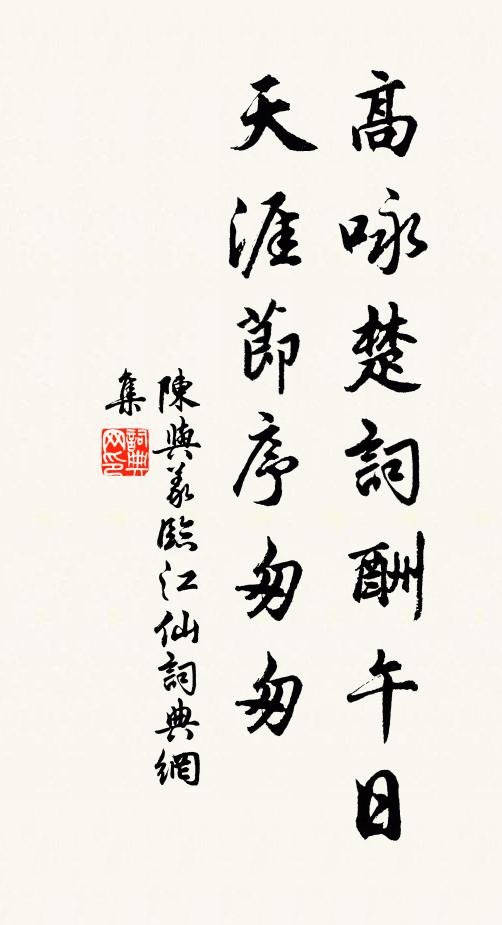 高咏楚詞酬午日
天涯節序匆匆
陳與義臨江仙詞典網
集
詞典
网印